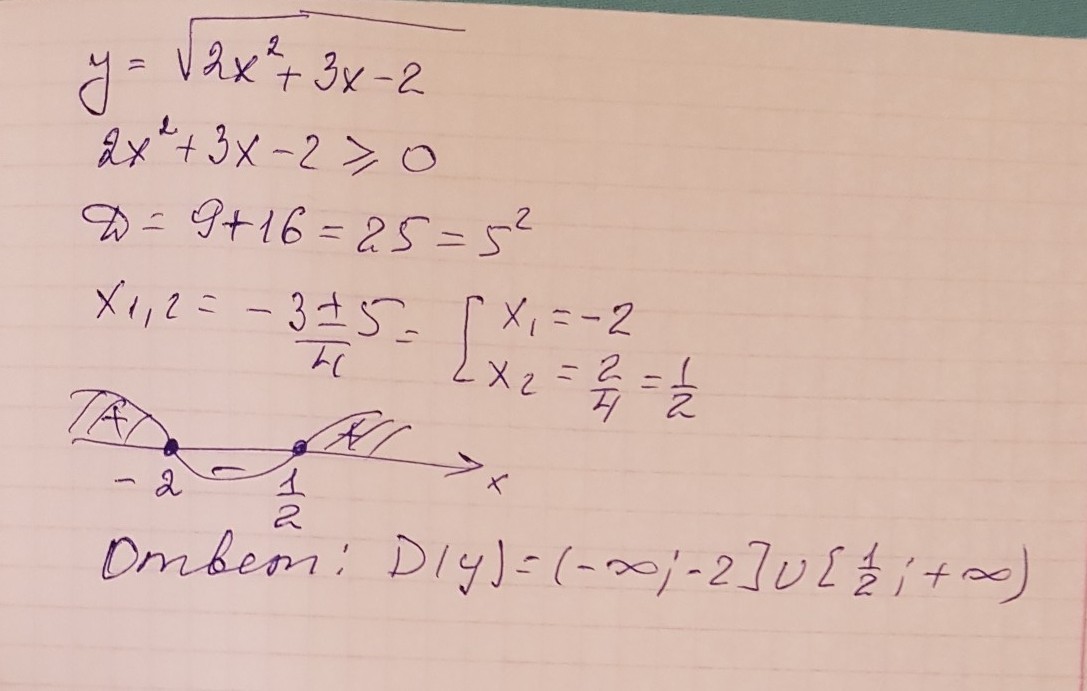 y = √(2x² + 3x - 2)
2x² + 3x - 2 ⩾ 0
D = 9 + 16 = 25 = 5²
x1,2 = (-3 ± 5)/4 = [ x₁ = -2
x₂ = 2/4 = 1/2
+ - +
-2 1/2 x
Ответ: D(y) = (-∞; -2] ∪ [1/2; +∞)